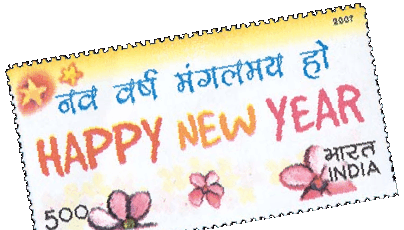 2007
नव वर्ष मंगलमय हो
HAPPY NEW YEAR
भारत
INDIA
500